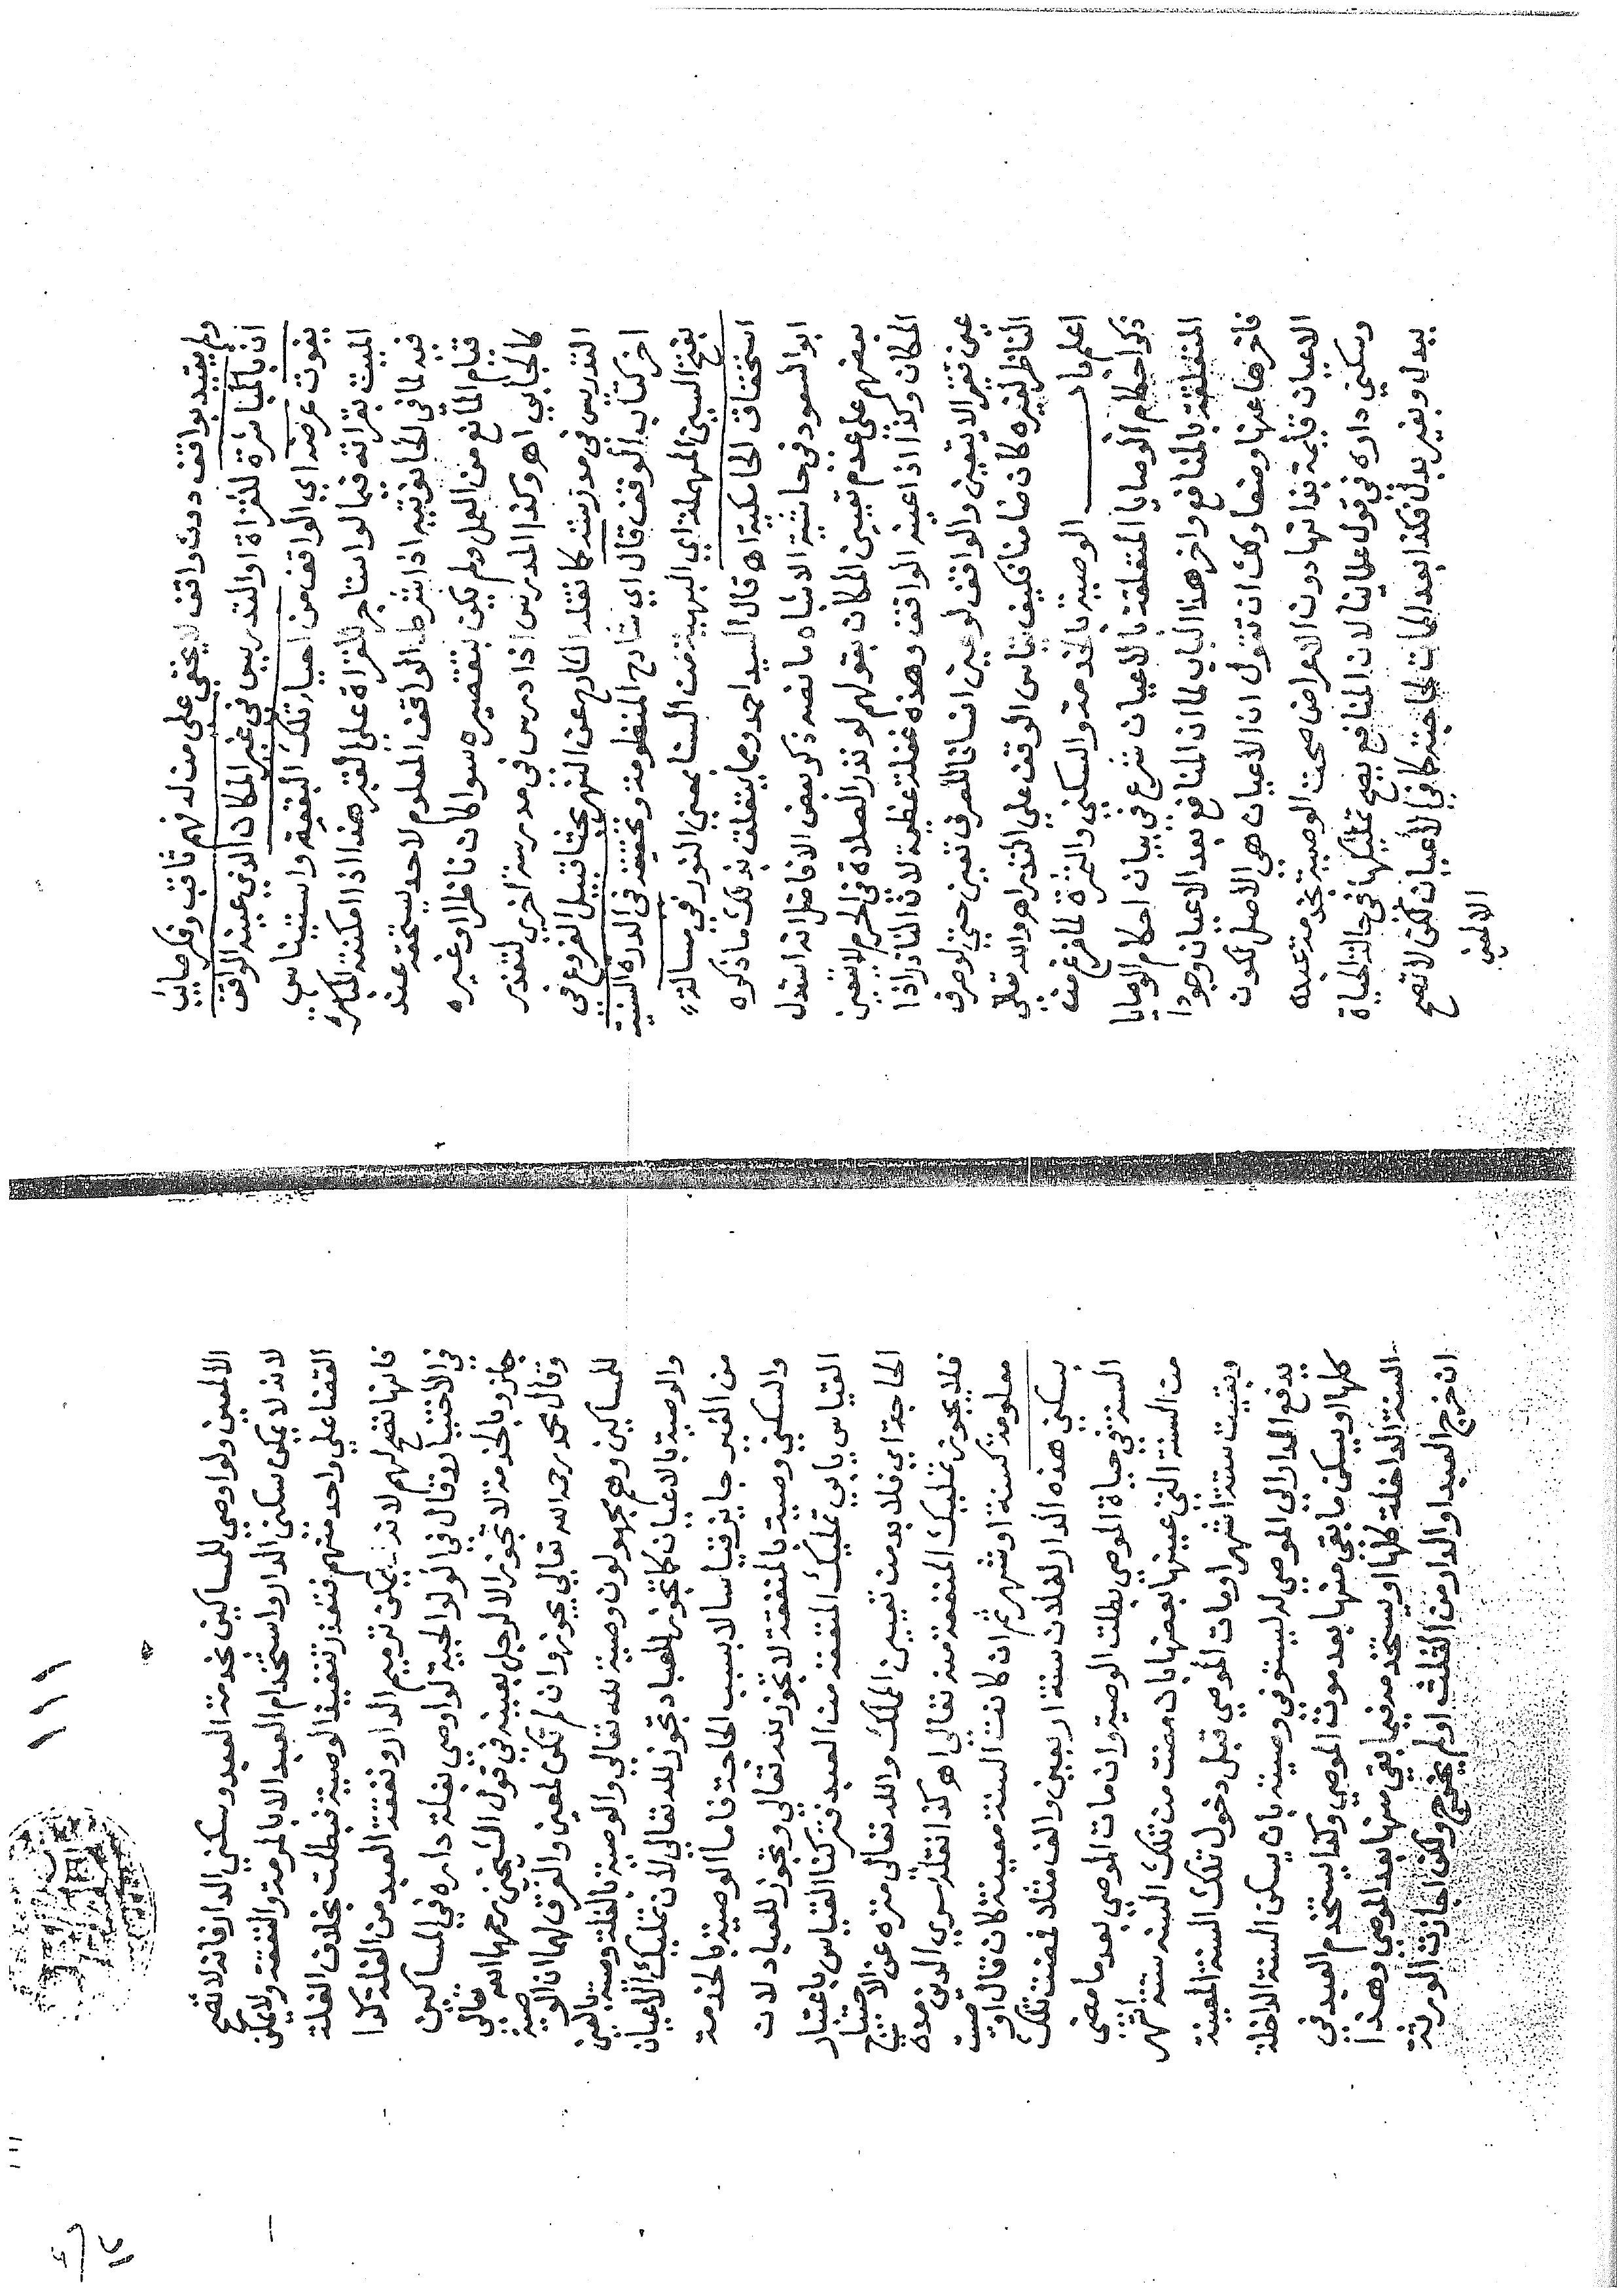 ولم يتقيد بواقف دون واقف لا يخفى على من له فهم ثاقب وفكر صايب
ان بالمباشرة للقراة او التدريس في غير المكان الذي عينه الواقف
يفوت غرضه اي الواقف من احيا تلك البقعة واستيناس
الميت بقراته فيما لو استاجر للقراة على القبر هذا اذا امكنته المباشرة
فيه لما في الحانوتيه اذا شرط الواقف المعلوم لاحد يستحقه عند
قيام المانع من العمل ولم يكن بتقصيره سوا كان ناظرا او غيره
كالجابي اهـ وكذا المدرس اذا درس في مدرسة اخري لتعذر
التدريس في مدرسته كما نقله الشارح عن النهر بحثا قبيل الفروع في
اخر كتاب الوقف قال اي شارح المنظومة وتحقيقه في الدرة السنية
بفتح السين المهملة اي البهية من السنا بمعني النور في مسالة
استحقاق الجامكية اهـ قال السيد احمد ومما يتعلق بذلك ما ذكره
ابو السعود في حاشية الاشباه ما نصه ذكر بعض الافاضل انه استدل
بعضهم على عدم تعيين المكان بقولهم لو نذر الصلاة في الحرم لا يتعين
المكان وكذا اذا عينه الواقف وهذه غفلة عظيمة لان الناذر اذا
عين فقيرا لا يتعين والواقف لو عين انسانا للصرف تعين حتي لو صرف
الناظر لغيره كان ضامنا فكيف يقاس الوقف علي النذر اهـ والله تعالي
اعلم باب الوصية بالخدمة والسكني والثمرة لما فرغ من
ذكر احكام الوصايا المتعلقة بالاعيان شرع في بيان احكام الوصايا
المتعلقة بالمنافع واخر هذا الباب لما ان المنافع بعد الاعيان وجودا
فاخرها عنها وضعا ولك ان تقول ان الاعيان هي الاصل لكون
الاعيان قايمة بذاتها دون الاعراض صحت الوصية بخدمة عبده
وسكني داره في قول علماينا لان المنافع يصح تمليكها في حالة الحياة
ببدل وبغير بدل فكذا بعد الممات لحاجته كما في الاعيان لكن لا تصح
الا لمعين
الا لمعين ولو اوصي للمساكين بخدمة العبد وسكني الدار فانه لا تصح
لانه لا يمكن سكنى الدار واستخدام العبد الا بالمرمة والنفقة ولا يمكن
القضا علي واحد منهم فتعذر تنفيذ الوصية فبطلت بخلاف الغلة
فانها تصح لهم لانه يمكن ترميم الدار ونفقة العبد من الغلة كذا
في الاختيار وقال في الولوالجية لو اوصي بغلة داره في المساكين
جاز وبالخدمة لا تجوز الا لرجل بعينه في قول الشيخين رحمهما الله تعالى
وقال محمد رحمه الله تعالي يجوز وان لم تكن لمعين والفرق لهما ان الوصية
للمساكين وهم مجهولون وصية لله تعالي والوصية بالغلة وصية بالعين
والوصية بالاعيان كما تجوز للعباد تجوز لله تعالي لان تمليك الاعيان
من الغير جايز قياسا لا بسبب الحاجة فاما الوصية بالخدمة
والسكني وصية بالمنفعة لا تجوز لله تعالي وتجوز للعباد لان
القياس يابي تمليك المنفعة من العبد فتركنا القياس باعتبار
الحاجة اي فلا بد من تعيين الملك والله تعالى منزه عن الاحتياج
فلا يجوز تمليك المنفعة منه تعالى اهـ كذا نقله سري الدين مدة
معلومة كسنة او شهر ثم ان كانت السنة معينة كان قال اوصيت
بسكني هذه الدار لفلان سنة اربعين والف مثلا فمضت تلك
السنة في حياة الموصي بطلت الوصية وان مات الموصي بعد ما مضي
من السنة التي عينها بعضها بان مضت من تلك السنة ستة اشهر
وبقيت ستة اشهر او مات الموصي قبل دخول تلك السنة المعينة
يدفع الدار الى الموصي له ليستوفي وصيته بان يسكن السنة الداخلة
كلها او يسكن ما بقى منها بعد موت الموصي وكذا يستخدم العبد في
السنة الداخلة كلها او يستخدمه فيما بقي منها بعد الموصي وهذا
ان خرج العبد او الدار من الثلث او لم يخرج ولكن اجازت الورثة
١١١